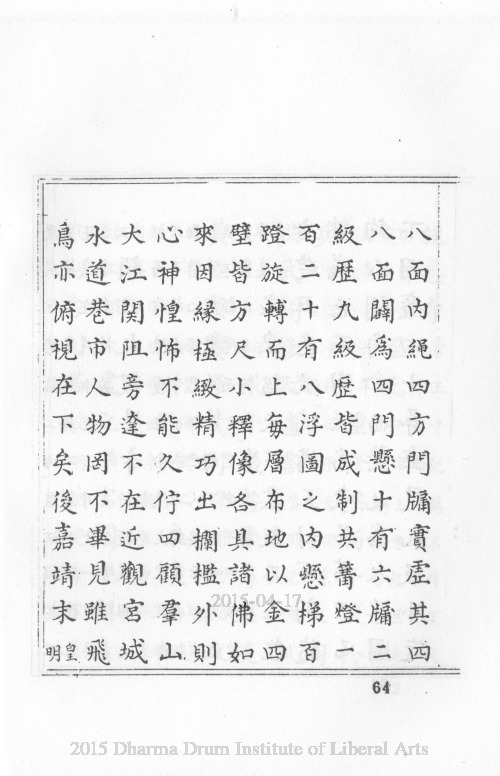 八面內繩四方門牖實虛其四
八面闢為四門懸十有六牖二
級歷九級歷皆成制共篝燈一
百二十有八浮圖之內懸梯百
蹬旋轉而上每層布地以金四
壁皆方尺小釋像各具諸佛如
來因緣極緻精巧出欄檻外則
心神惶怖不能久佇四顧羣山
大江関阻旁達不在近觀宮城
水道巷市人物罔不畢見雖飛
鳥亦俯視在下矣後嘉靖末皇明
64
2015-04-17
2015 Dharma Drum Institute of Liberal Arts